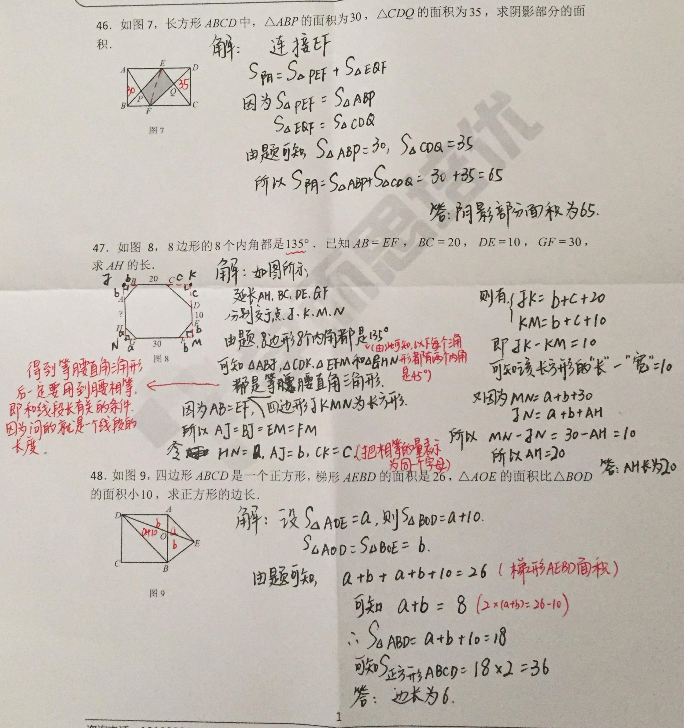 46. 如图 7，长方形 ABCD 中，△ABP 的面积为30，△CDQ 的面积为35，求阴影部分的面
积.
解： 连接EF
S阴=S△PEF+S△EQF
因为S△PEF=S△ABP
S△EQF=S△CDQ
由题可知 S△ABP=30, S△CDQ=35
所以 S阴=S△ABP+S△CDQ=30+35=65
答:阴影部分面积为65.
A E D
30 P Q 35
B F C
图 7
47. 如图 8，8 边形的 8 个内角都是135°．已知 AB=EF，BC=20，DE=10，GF=30，
求 AH 的长.
解：如图所示,
延长AH、BC、DE、GF
分别交于点J、K、M、N
由题,8边形8个内角都是135°
(由此可知,以下每个三角形都有两个内角是45°)
可知△ABJ、△CDK、△EFM和△GHN
都是等腰直角三角形.
因为AB=EF、四边形JKMN为长方形.
所以 AJ=BJ=EM=FM
令 HN=a, AJ=b, CK=C (把相等的量表示
为同一个字母)
则有 JK=b+c+20
KM=b+c+10
即 JK-KM=10
可知该长方形的"长"-"宽"=10
又因为 MN=a+b+30
JN=a+b+AH
所以 MN-JN=30-AH=10
所以AH=20
答:AH长为20
得到等腰直角三角形
后一定要用到腰相等,
即和线段长有关的条件.
因为问的就是一个线段的
长度.
J b B 20 C c K
b A D c
? 10
H E b
N a G 30 F b M
图 8
48. 如图 9, 四边形 ABCD 是一个正方形, 梯形 AEBD 的面积是 26, △AOE 的面积比△BOD
的面积小10，求正方形的边长.
解：设S△AOE=a,则S△BOD=a+10.
S△AOD=S△BOE=b.
由题可知, a+b+a+b+10=26 (梯形AEBD面积)
可知 a+b=8 (2×(a+b)=26-10)
∴S△ABD=a+b+10=18
可知S正方形ABCD=18×2=36
答: 边长为6.
D A
b a
a+10 O E
b
C B
图 9
1